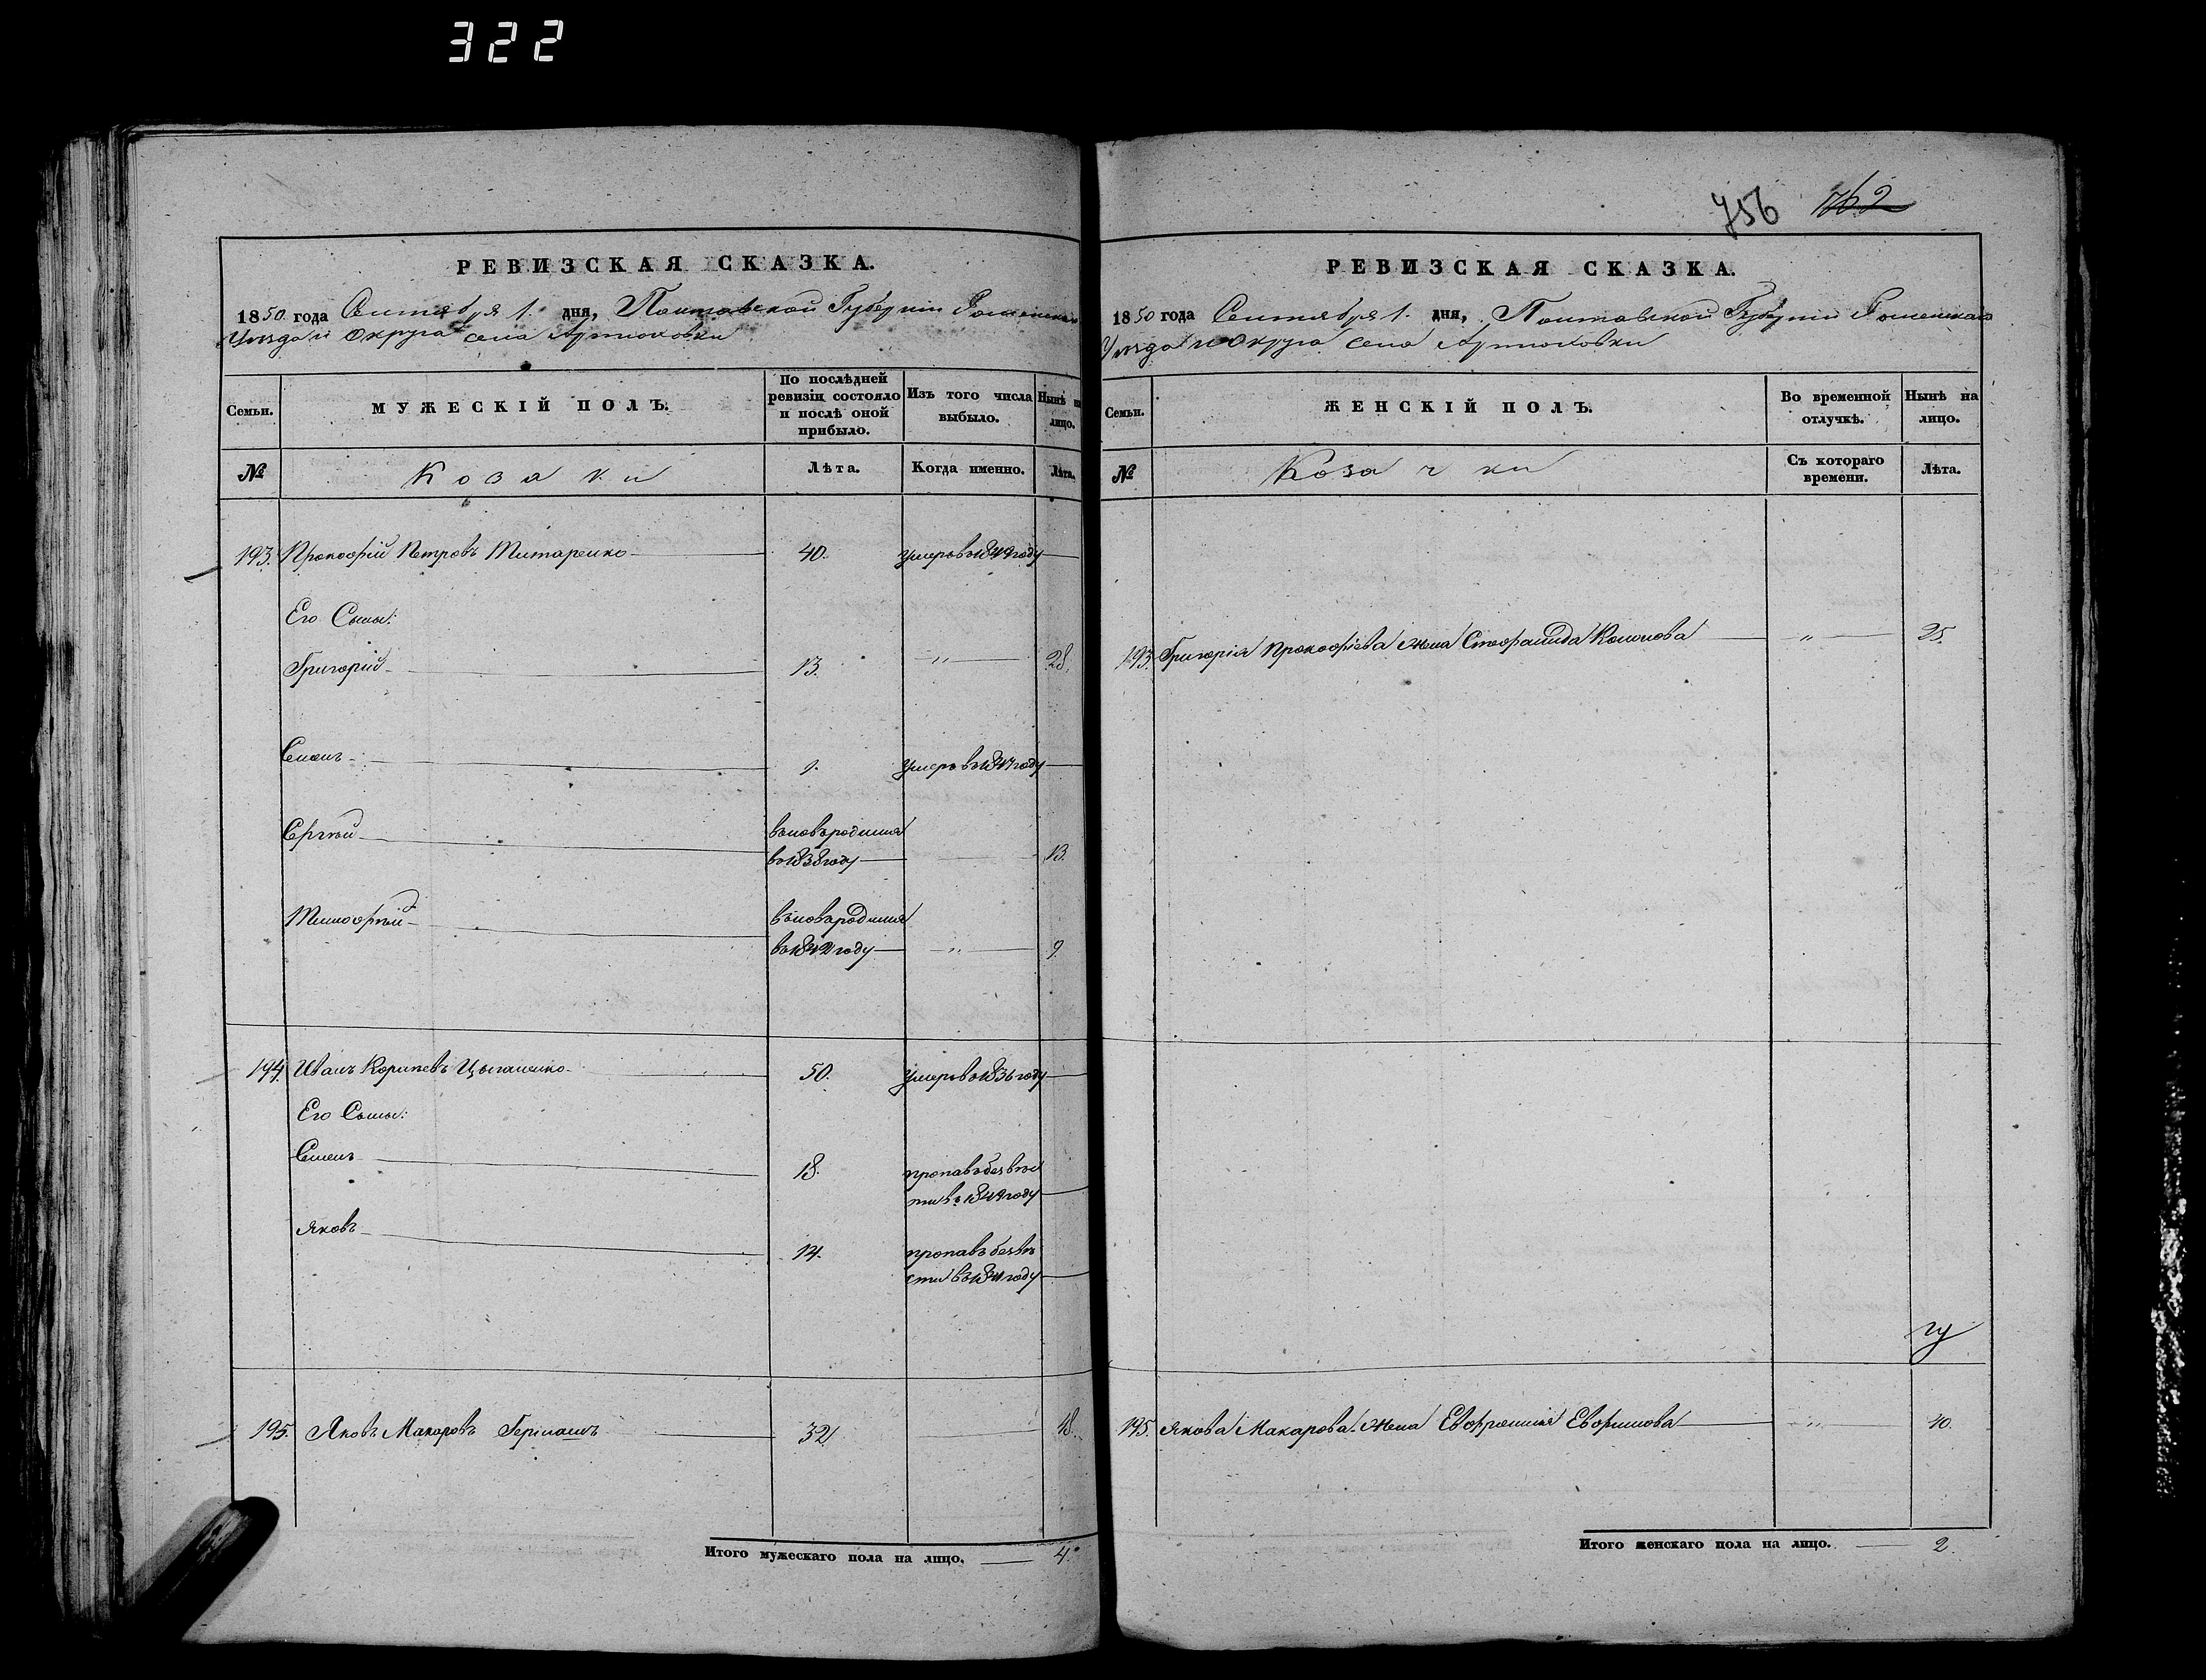 322
756 762
РЕВИЗСКАЯ СКАЗКА.
1850 года Сентября 1. дня, Полтавской Губерніи Роменскаго
Уезда и Округа села Артюховки
Семьи. МУЖЕСКІЙ ПОЛЪ. По послѣдней ревизіи состояло и послѣ оной прибыло. Изъ того числа выбыло. Нынѣ на лицо.
№ Козаки Лѣта. Когда именно. Лѣта.
193. Прокофій Петровъ Титаренко 40. умеръ въ 1849 году
Его Сыны:
Григорій 13. " 28.
Семенъ 9. умеръ въ 1847 году
Сергѣй вновь родился
въ 1838 году 13.
Тимофѣй вновь родился
въ 1842 году " 9.
194. Иванъ Корнѣевъ Цыганенко 50. умеръ въ 1836 году
Его Сыны:
Семенъ 18. пропавъ безвѣс
ти въ 1849 году
Яковъ 14. пропавъ безвѣ
сти въ 1841 году
195. Яковъ Макаровъ 32 48.
Итого мужескаго пола на лицо. 4.
РЕВИЗСКАЯ СКАЗКА.
1850 года Сентября 1. дня, Полтавской Губерніи Роменскаго
Уезда и Округа села Артюховки
Семьи. ЖЕНСКІЙ ПОЛЪ. Во временной отлучкѣ. Нынѣ на лицо.
№ Козачки Съ котораго времени. Лѣта.
193. Григорія Прокофіева жена Стефанида " 25.
195. Якова Макарова жена Евфросинія Ефимова " 40.
Итого женскаго пола на лицо. 2.